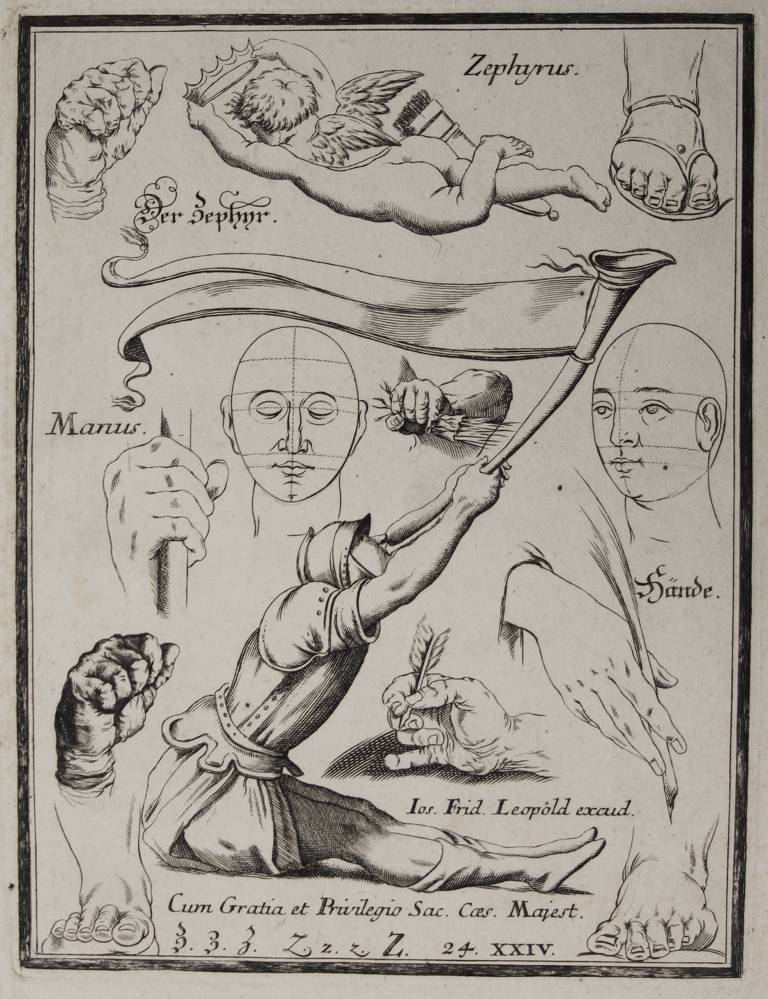 Zephyrus.
Der Zephyr.
Manus.
Hände.
Ios. Frid. Leopòld excud.
Cum Gratia et Privilegio Sac. Cæs. Majest.
Z. Z. Z. Z z. z Z. 24. XXIV.